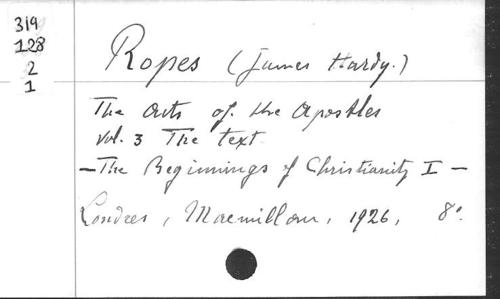 319
128
2
1
Ropes (James Hardy.)
The Acts of the Apostles
vol. 3 The text
- The Beginnings of Christianity I -
Londres, Macmillan, 1926, 8°.